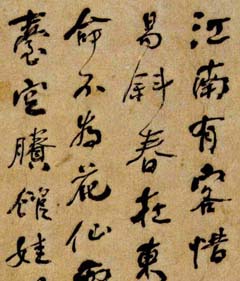 江南有客惜
易斜春在東
命不為花仙
空賸館娃